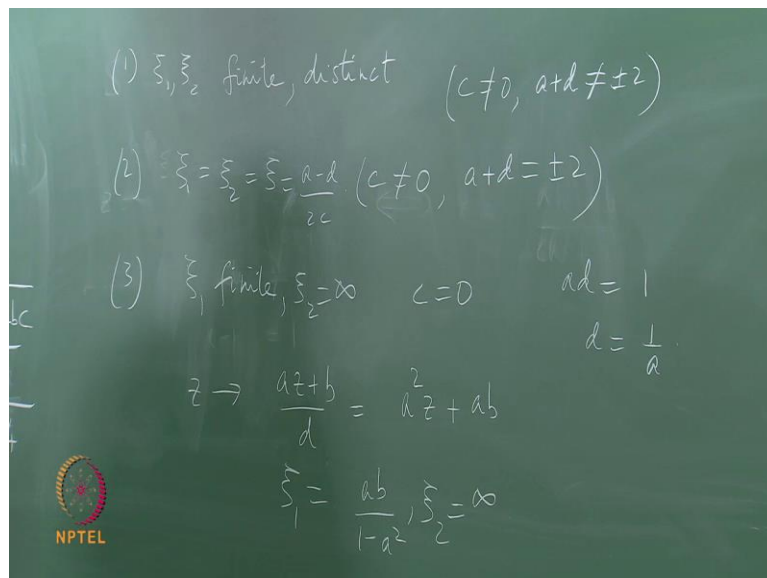 (1) ξ₁, ξ₂ finite, distinct (c ≠ 0, a+d ≠ ±2)
(2) ξ₁ = ξ₂ = ξ = (a-d)/2c (c ≠ 0, a+d = ±2)
(3) ξ₁ finite, ξ₂ = ∞ c = 0 ad = 1
bc
d = 1/a.
z → (az+b)/d = a²z + ab
ξ₁ = ab/(1-a²), ξ₂ = ∞
NPTEL